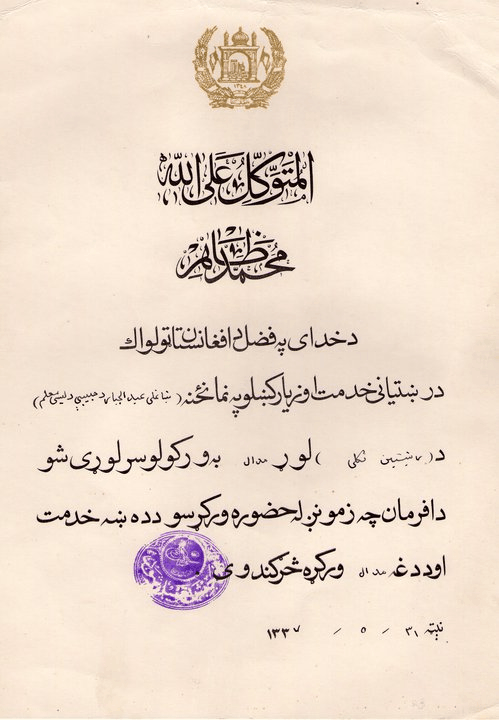 ١٣٤٨
المتوکل علی الله
محمد ظاهر
د خدای په فضل د افغانستان ټولواک
د رښتیانی خدمت او زیار کښلو په نمانځنه (ښاغلی عبدالجبار د حبیبیې د لیسې معلم)
د (رښتین ټکلی) لوړ مدال به ورکولو سر لوړی شو
دا فرمان چه زمونږ له حضوره ورکړ سو د ده ښه خدمت
او د دغه مدال ورکړه څرګندوی
نېټه ٣١ - ٥ - ١٣٣٧